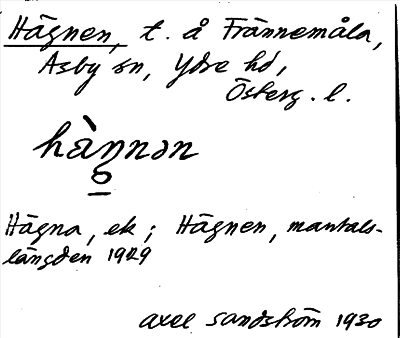 Hägnen, t. å Frännemåla,
Asby sn, Ydre hd,
Österg. l.
hàŋnən
Hägna, ek; Hägnen, mantals-
längden 1929
Axel Sandström 1930